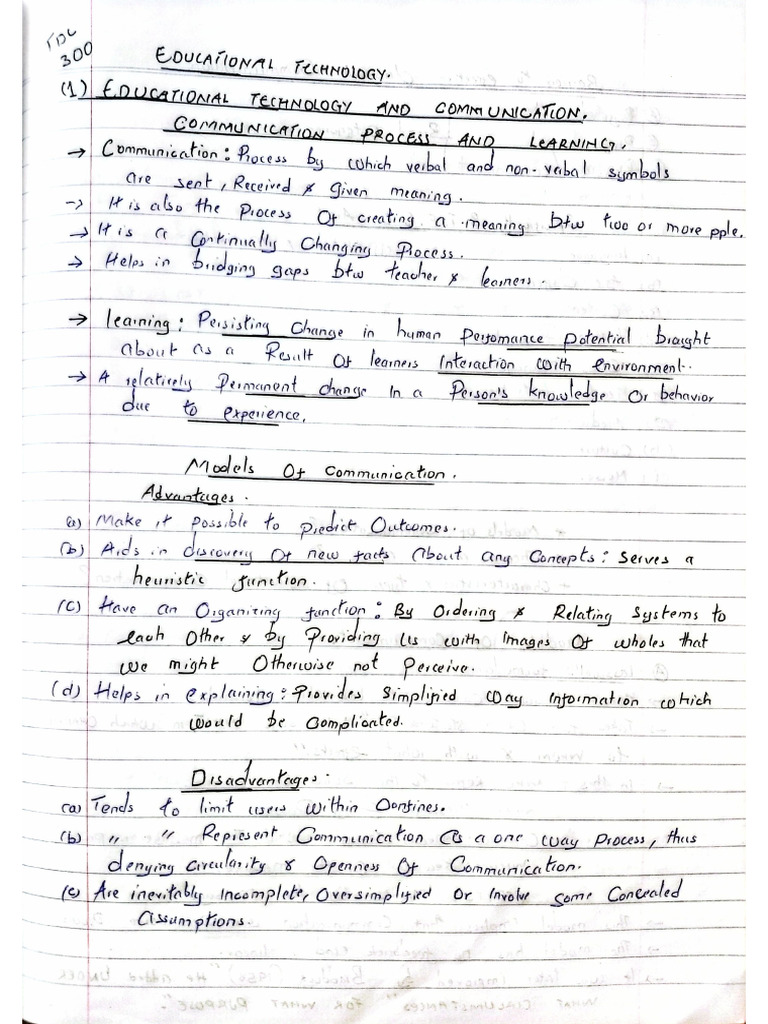 TDC
300
EDUCATIONAL TECHNOLOGY.
(1) EDUCATIONAL TECHNOLOGY AND COMMUNICATION.
COMMUNICATION PROCESS AND LEARNING.
→ Communication: Process by which verbal and non-verbal symbols
are sent, Received & given meaning.
→ It is also the Process Of creating a meaning btw two or more pple.
→ It is a Continually Changing Process.
→ Helps in bridging gaps btw teacher & learners.
→ Learning: Persisting Change in human Perfomance Potential brought
about as a Result Of learners Interaction with environment.
→ A relatively Permanent change In a Person's knowledge Or behavior
due to experience.
Models Of Communication.
Advantages.
(a) Make it possible to predict Outcomes.
(b) Aids in discovery Of new facts About any Concepts: Serves a
heuristic function.
(c) Have an Organizing function: By Ordering & Relating Systems to
each Other & by Providing Us with Images Of wholes that
we might Otherwise not Perceive.
(d) Helps in explaining: Provides Simplified way Information which
would be Complicated.
Disadvantages.
(a) Tends to limit users within Confines.
(b) " " Represent Communication as a one way Process, thus
denying circularity & Openness Of Communication.
(c) Are inevitably Incomplete, Oversimplified Or Involve Some Concealed
Assumptions.